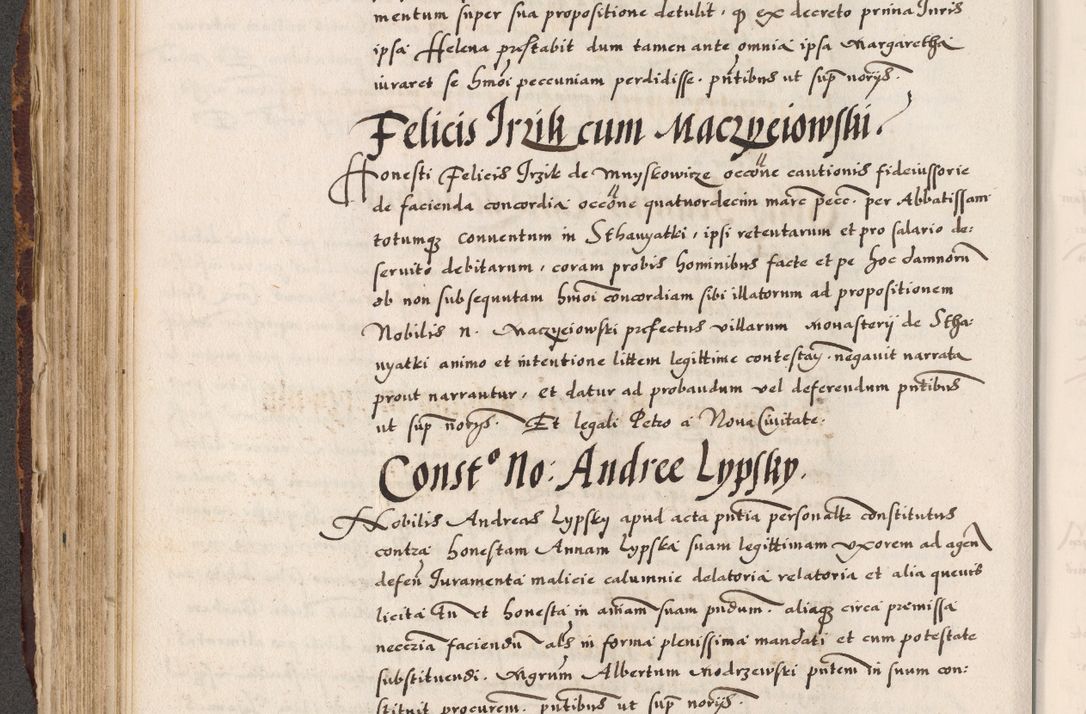 mentum super sua propositione detulit. q ex decreto prima Iuris
ipsa Helena prestabit dum tamen ante omnia ipsa Margaretha
iuraret se hmoi peccuniam perdidisse. pntibus ut sup norijs.
Felicis Irzik cum Maczyeiowski.
Honesti Felicis Irzik de Mnyskowize occone cautionis fideiussorie
de facienda concordia occone quatuordecim marc pecc. per Abbatissam
totumq conuentum in Sthanyatki, ipsi retentarum et pro salario de:
seruito debitarum, coram probis hominibus facte et pe hoc damnorum
ob non subsequutam hmoi concordiam sibi illatorum ad propositionem
Nobilis n. Maczyeiowski prefectus villarum monasterij de Stha:
nyatki animo et intentione littem legittime contestan. negauit narrata
prout narrantur, et datur ad probandum vel deferendum pntibus
ut sup norijs. Et legali Petro a Noua Ciuitate.
Const° No: Andree Lypsky.
Nobilis Andreas Lypsky apud acta pntia personaltr constitutus
contra honestam Annam Lypska suam legittimam vxorem ad agen
defen Iuramenta malicie calumnie delatoria relatoria et alia queuis
licita tn et honesta in aiam suam pndum. aliaq circa premissa
neccria faciendu als in forma plenissima mandati et cum potestate
substituendi. Mgrum Albertum Modrzewski pntem in suum con:
stituit procurem. pntibus ut sup norijs.